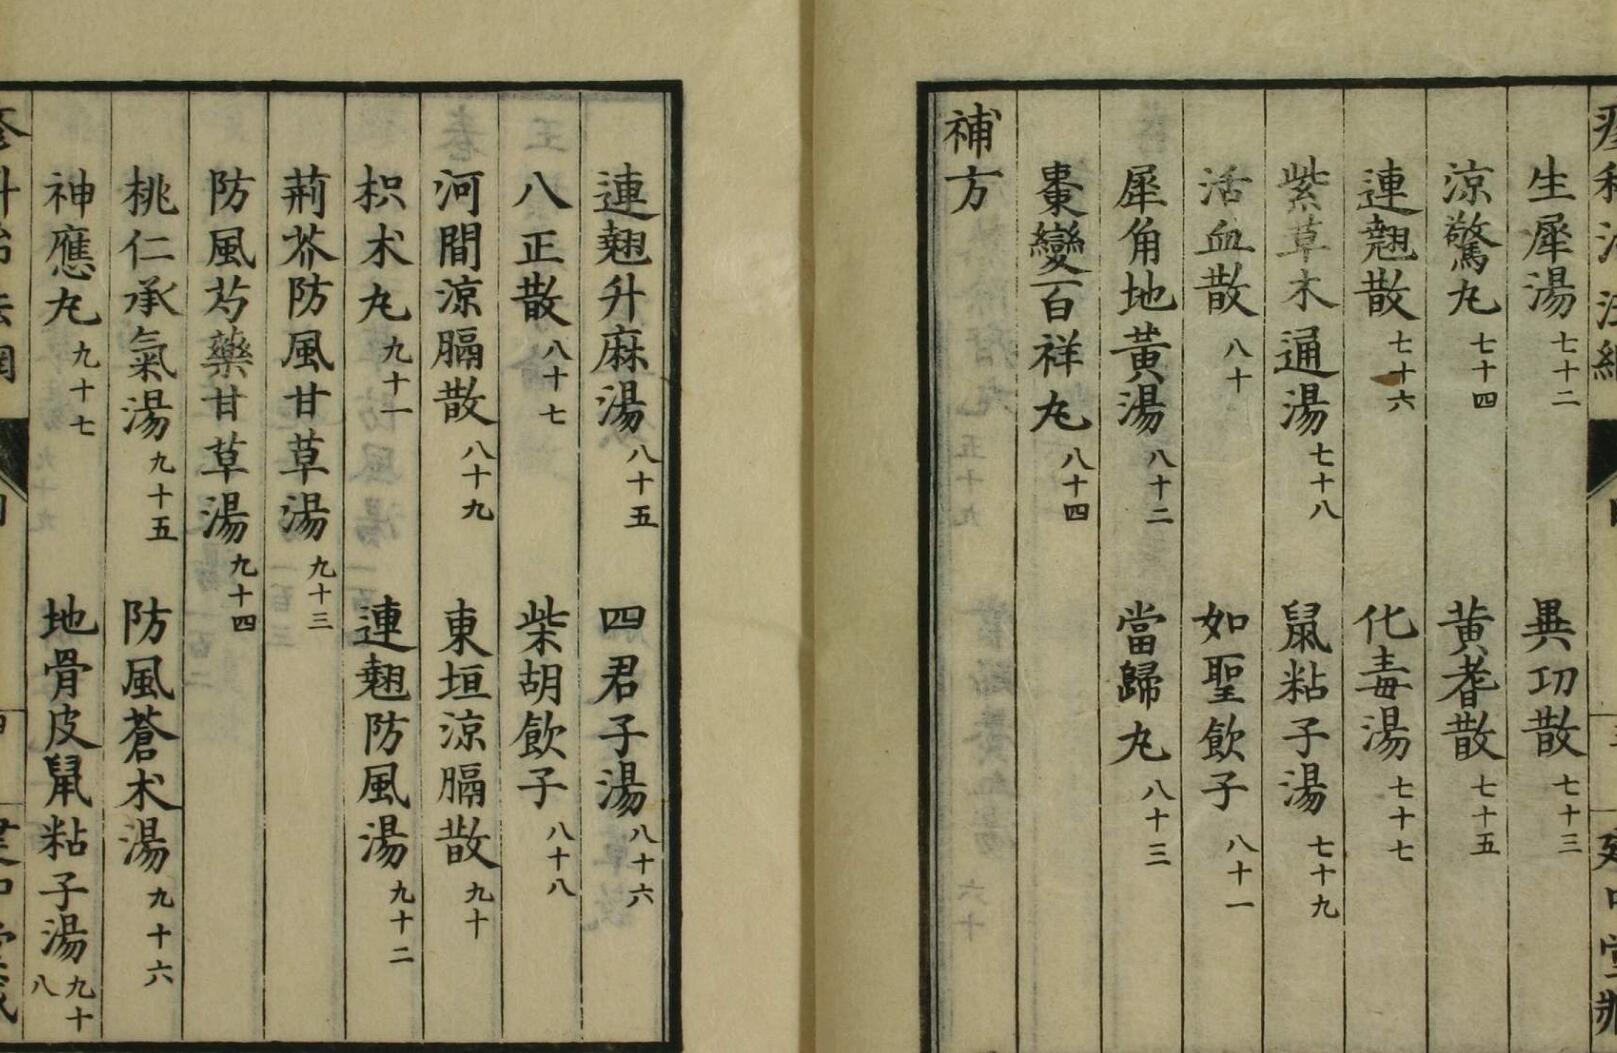 生犀湯七十二 異功散七十三
涼驚丸七十四 黃耆散七十五
連翹散七十六 化毒湯七十七
紫草木通湯七十八 鼠粘子湯七十九
活血散八十 如聖飲子八十一
犀角地黃湯八十二 當歸丸八十三
棗變百祥丸八十四
補方
連翹升麻湯八十五 四君子湯八十六
八正散八十七 柴胡飲子八十八
河間涼膈散八十九 東垣涼膈散九十
枳朮丸九十一 連翹防風湯九十二
荊芥防風甘草湯九十三
防風芍藥甘草湯九十四
桃仁承氣湯九十五 防風蒼朮湯九十六
神應丸九十七 地骨皮鼠粘子湯九十八